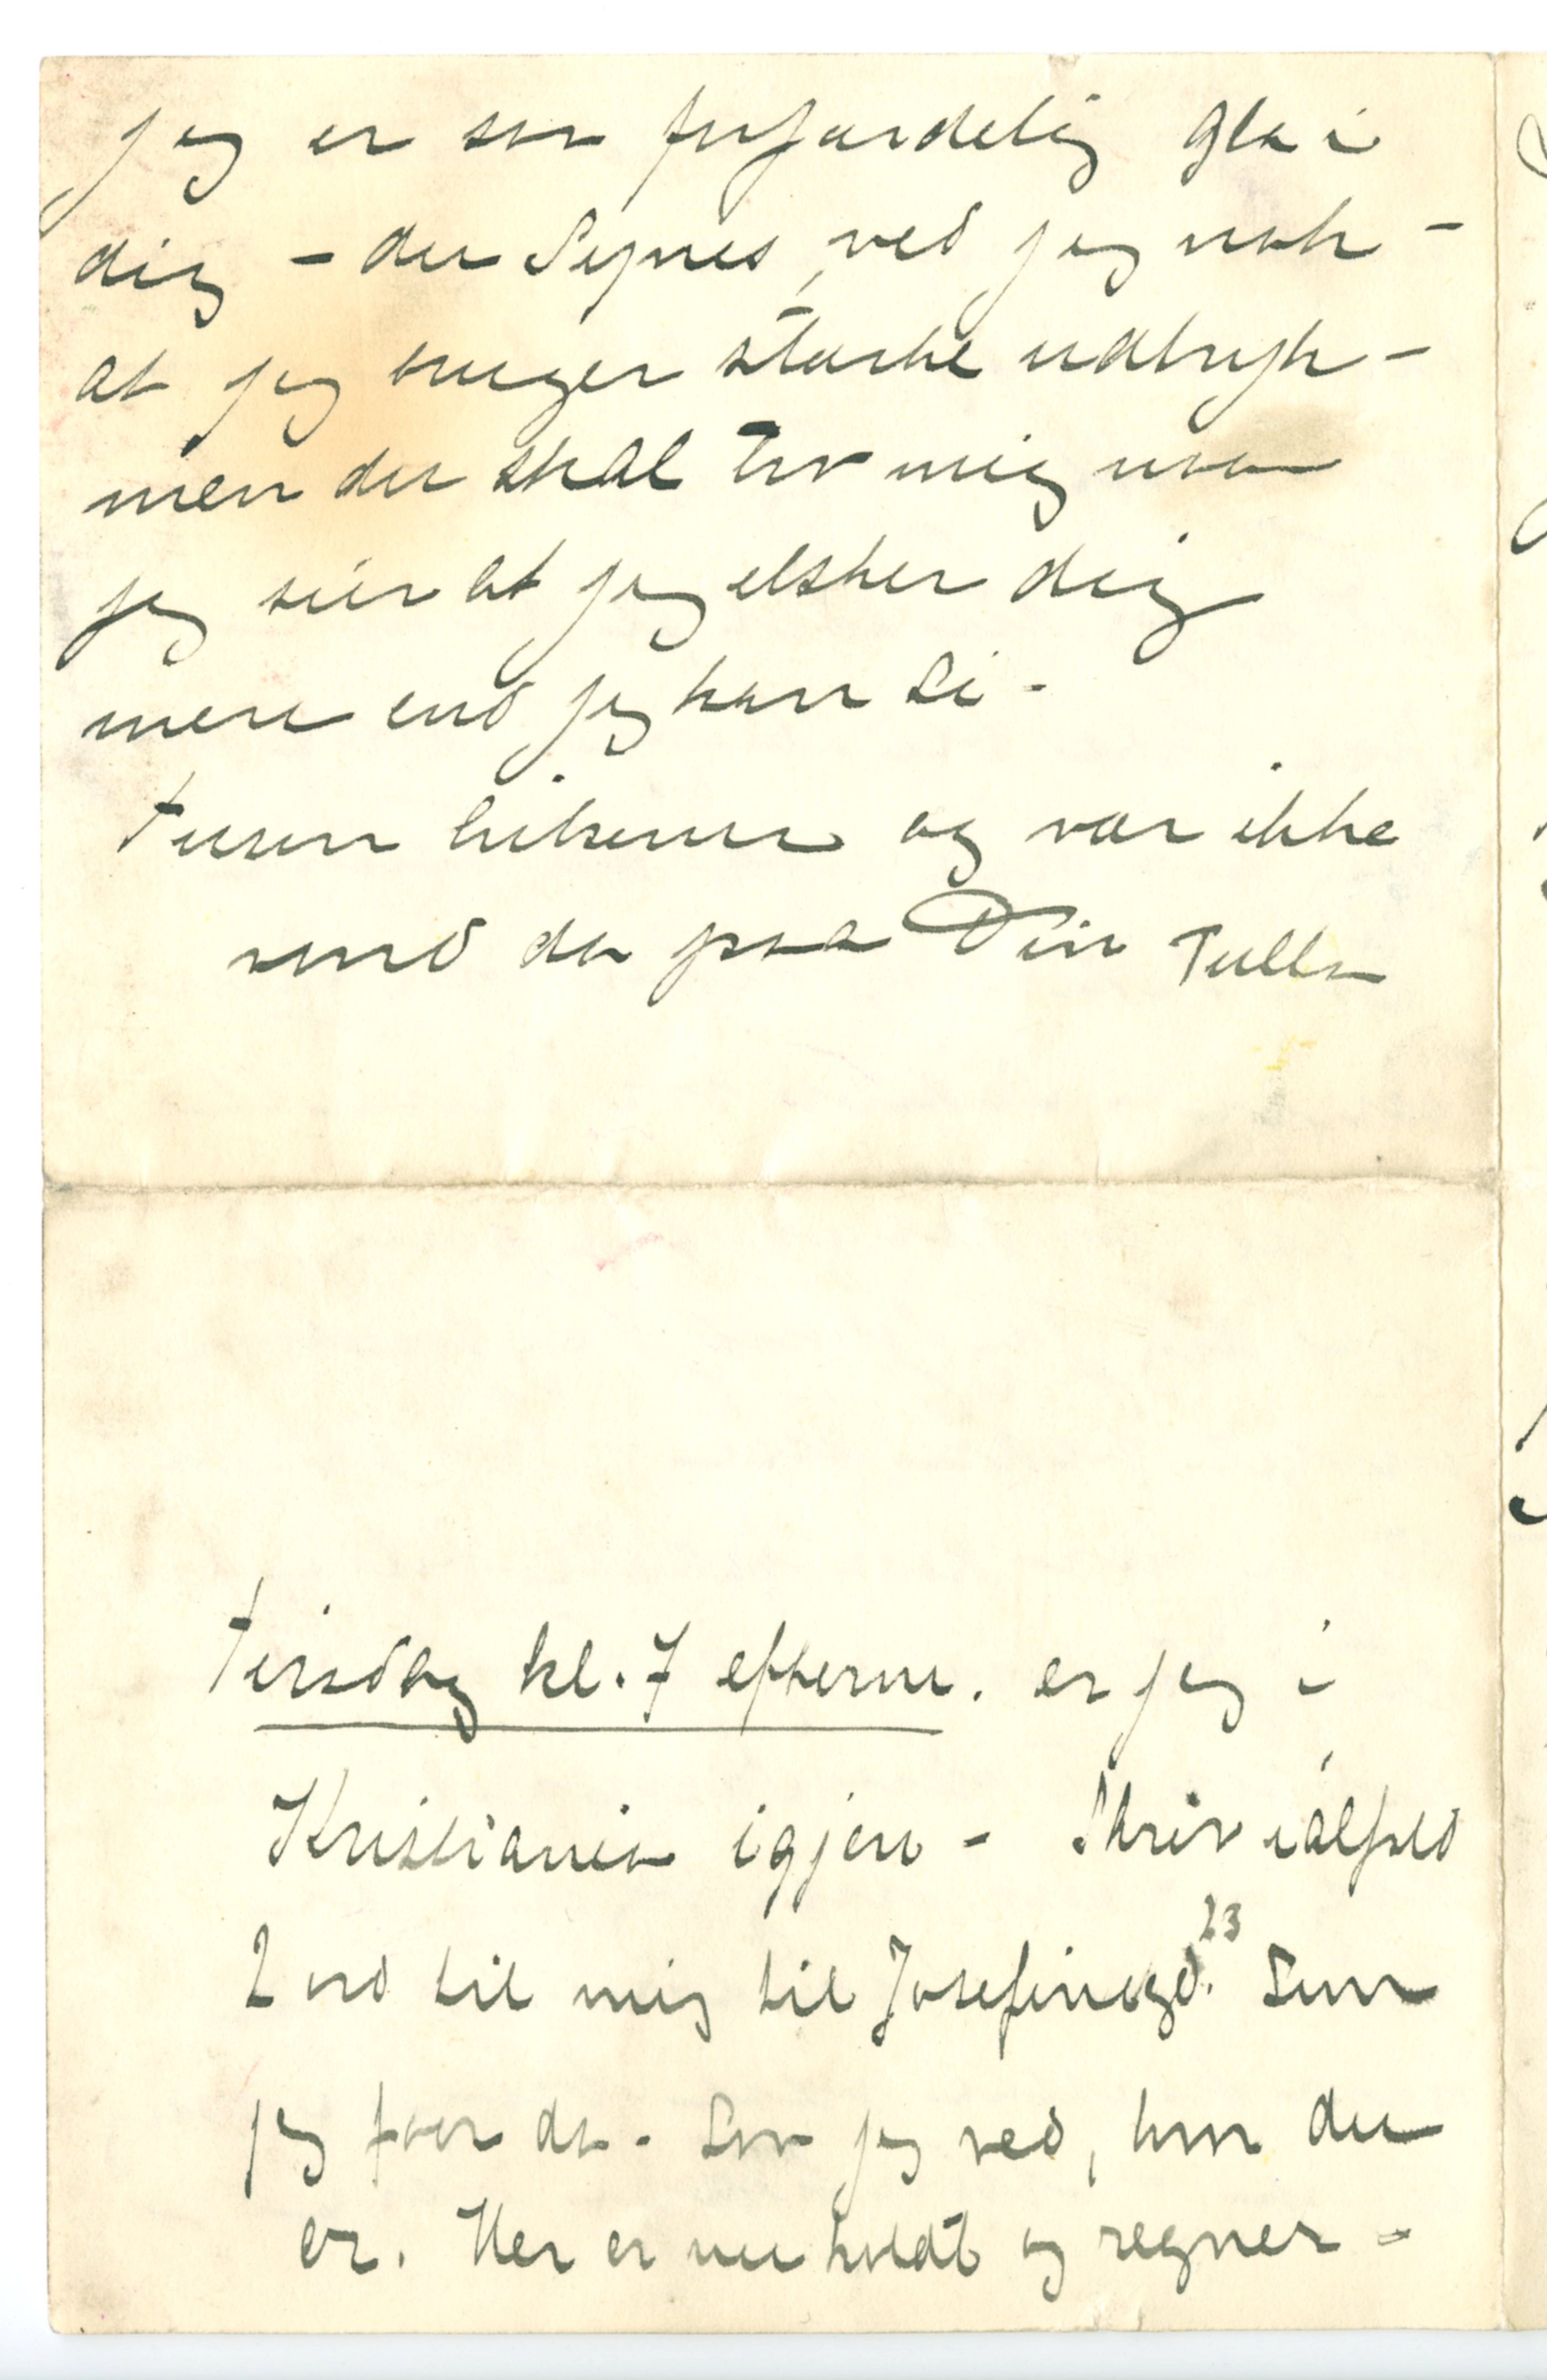 jeg er saa forfærdelig gla i
dig – du synes, ved jeg nok –
at jeg bruger stærke udtryk –
men du skal tro mig naar
jeg sier at jeg elsker dig
mere end jeg kan si –
Tusen hilsener og vær ikke
vond da paa Din Tulla
Tirsdag kl. 7 efterm. er jeg i
Kristiania igjen – Skriv ialfald
2 ord til mig til Josefinegd. 23 som
jeg faar da – saa jeg ved, hvor du
er. Her er nu koldt og regner –